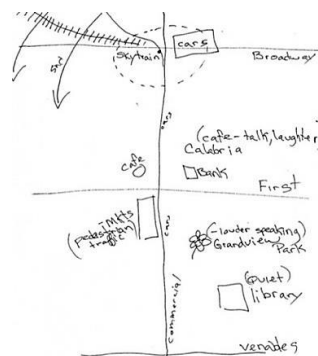 cars
Skytrain
Broadway
cars
(cafe-talk, laughter)
Calabria
cafe
Bank
First
-Mkts
(pedestrian
traffic)
cars
(-louder speaking)
Grandview
Park
(Quiet)
library
commercial
venables